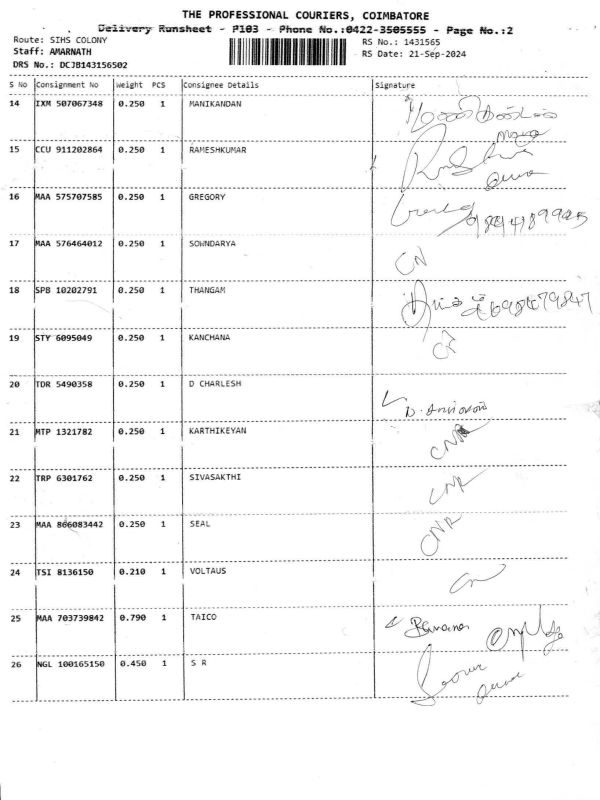 THE PROFESSIONAL COURIERS, COIMBATORE
Delivery Runsheet - P103 - Phone No.:0422-3505555 - Page No.:2
Route: SIHS COLONY RS No.: 1431565
Staff: AMARNATH RS Date: 21-Sep-2024
DRS No.: DCJB143156502
S No Consignment No Weight PCS Consignee Details Signature
14 IXM 507067348 0.250 1 MANIKANDAN
15 CCU 911202864 0.250 1 RAMESHKUMAR
16 MAA 575707585 0.250 1 GREGORY
17 MAA 576464012 0.250 1 SOWNDARYA CN
18 SPB 10202791 0.250 1 THANGAM
19 STY 6095049 0.250 1 KANCHANA
20 TDR 5490358 0.250 1 D CHARLESH
21 MTP 1321782 0.250 1 KARTHIKEYAN CNR
22 TRP 6301762 0.250 1 SIVASAKTHI CNR
23 MAA 866083442 0.250 1 SEAL CNR
24 TSI 8136150 0.210 1 VOLTAUS CN
25 MAA 703739842 0.790 1 TAICO
26 NGL 100165150 0.450 1 S R